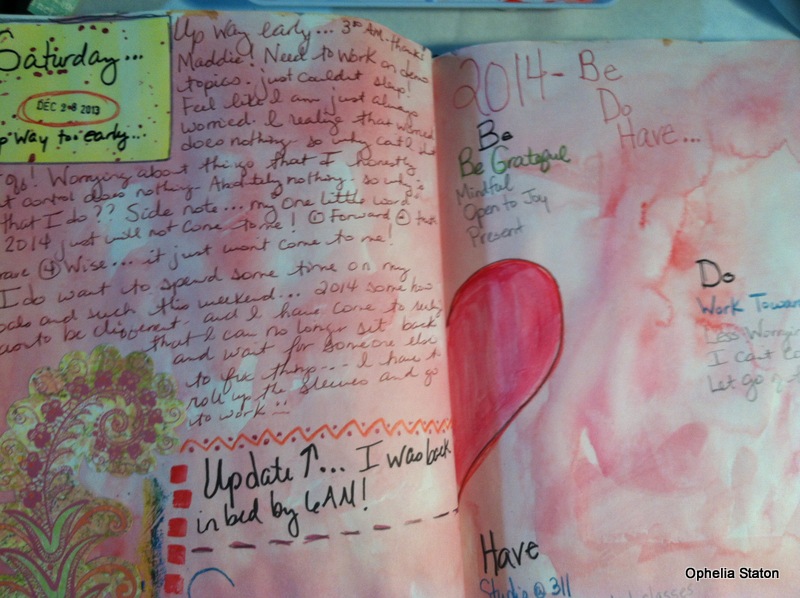 Saturday...
DEC 28 2013
Way too early...
Up Way early... 3rd AM. thanks
Maddie! Need to work on demo
topics. just couldnt sleep!
Feel like I am just always
worried. I realize that worried
does nothing - so why cant I
go! Worrying about things that I honestly
control does nothing. Absolutely nothing. So why is
that I do?? Side note... my one little word
2014 just will not come to me! ① Forward ②
④ Wise... it just won't come to me!
I do want to spend some time on my
and such this weekend... 2014 some how
to be different - and I have come to
that I can no longer sit back
and wait for someone else
to fix things... I have to
roll up the sleeves and go
to work :)
Update ↑... I was back
in bed by 6AM!
2014 - Be
Do
Have...
Be
Be Grateful
Mindful
Open to Joy
Present
Do
Work
Less Worrying
I Cant
Let go
Have
Studio @ 311
classes
Ophelia Staton